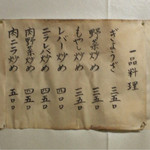 一品料理
ぎょうざ 三五〇
野菜炒め 三五〇
もやし炒め 三五〇
レバー炒め 四〇〇
ニラレバ炒め 四五〇
肉野菜炒め 四五〇
肉ニラ炒め 五〇〇